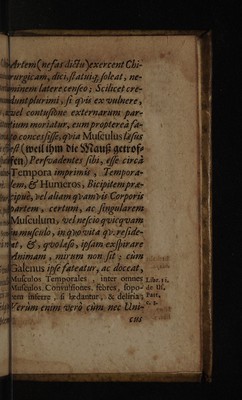 Artem (nefas dictu) exercent Chi-
rurgicam, dici, statuiq; soleat, ne-
minem latere censeo; Scilicet cre-
dunt plurimi, si qvis ex vulnere,
vel contusione externarum par-
tium moriatur, eum propterea fa-
to concessisse, qvia Musculus læsus
est (weil ihm die Mauß getrof-
fen) Persvadentes sibi, esse circa
Tempora imprimis, Tempora-
lem, & Humeros, Bicipitem præ-
cipuè, vel aliam qvamvis Corporis
partem, certum, ac singularem
Musculum, vel nescio qvicqvam
in musculo, in qvo vita qv. reside-
at, &, qvo læso, ipsam exspirare
Animam, mirum non sit; cum
Galenus ipse fateatur, ac doceat,
Musculos Temporales, inter omnes
Musculos, Convulsiones, febres, sopo-
rem inferre, si lædantur, & deliria.
Verùm enim verò cùm nec Uni-
cui
Libr. II.
de Us.
Part.
c. 3.